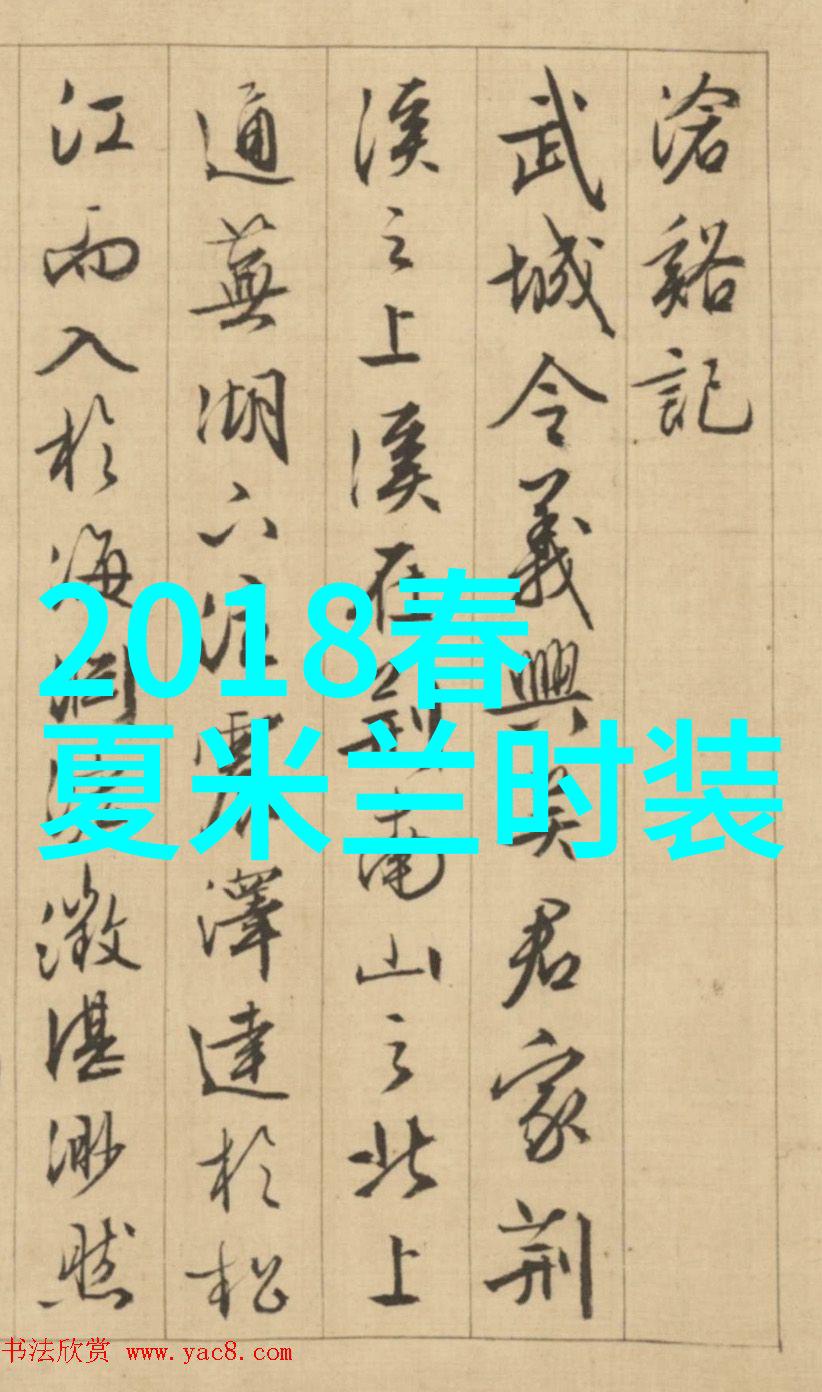 滄谿記
武城令義興吳君家荊
溪之上溪在荊南山之北上
通蕪湖下注震澤達於松
江而入於海澂湛渺然
2018春
夏米兰时装
书法欣赏 www.yac8.com